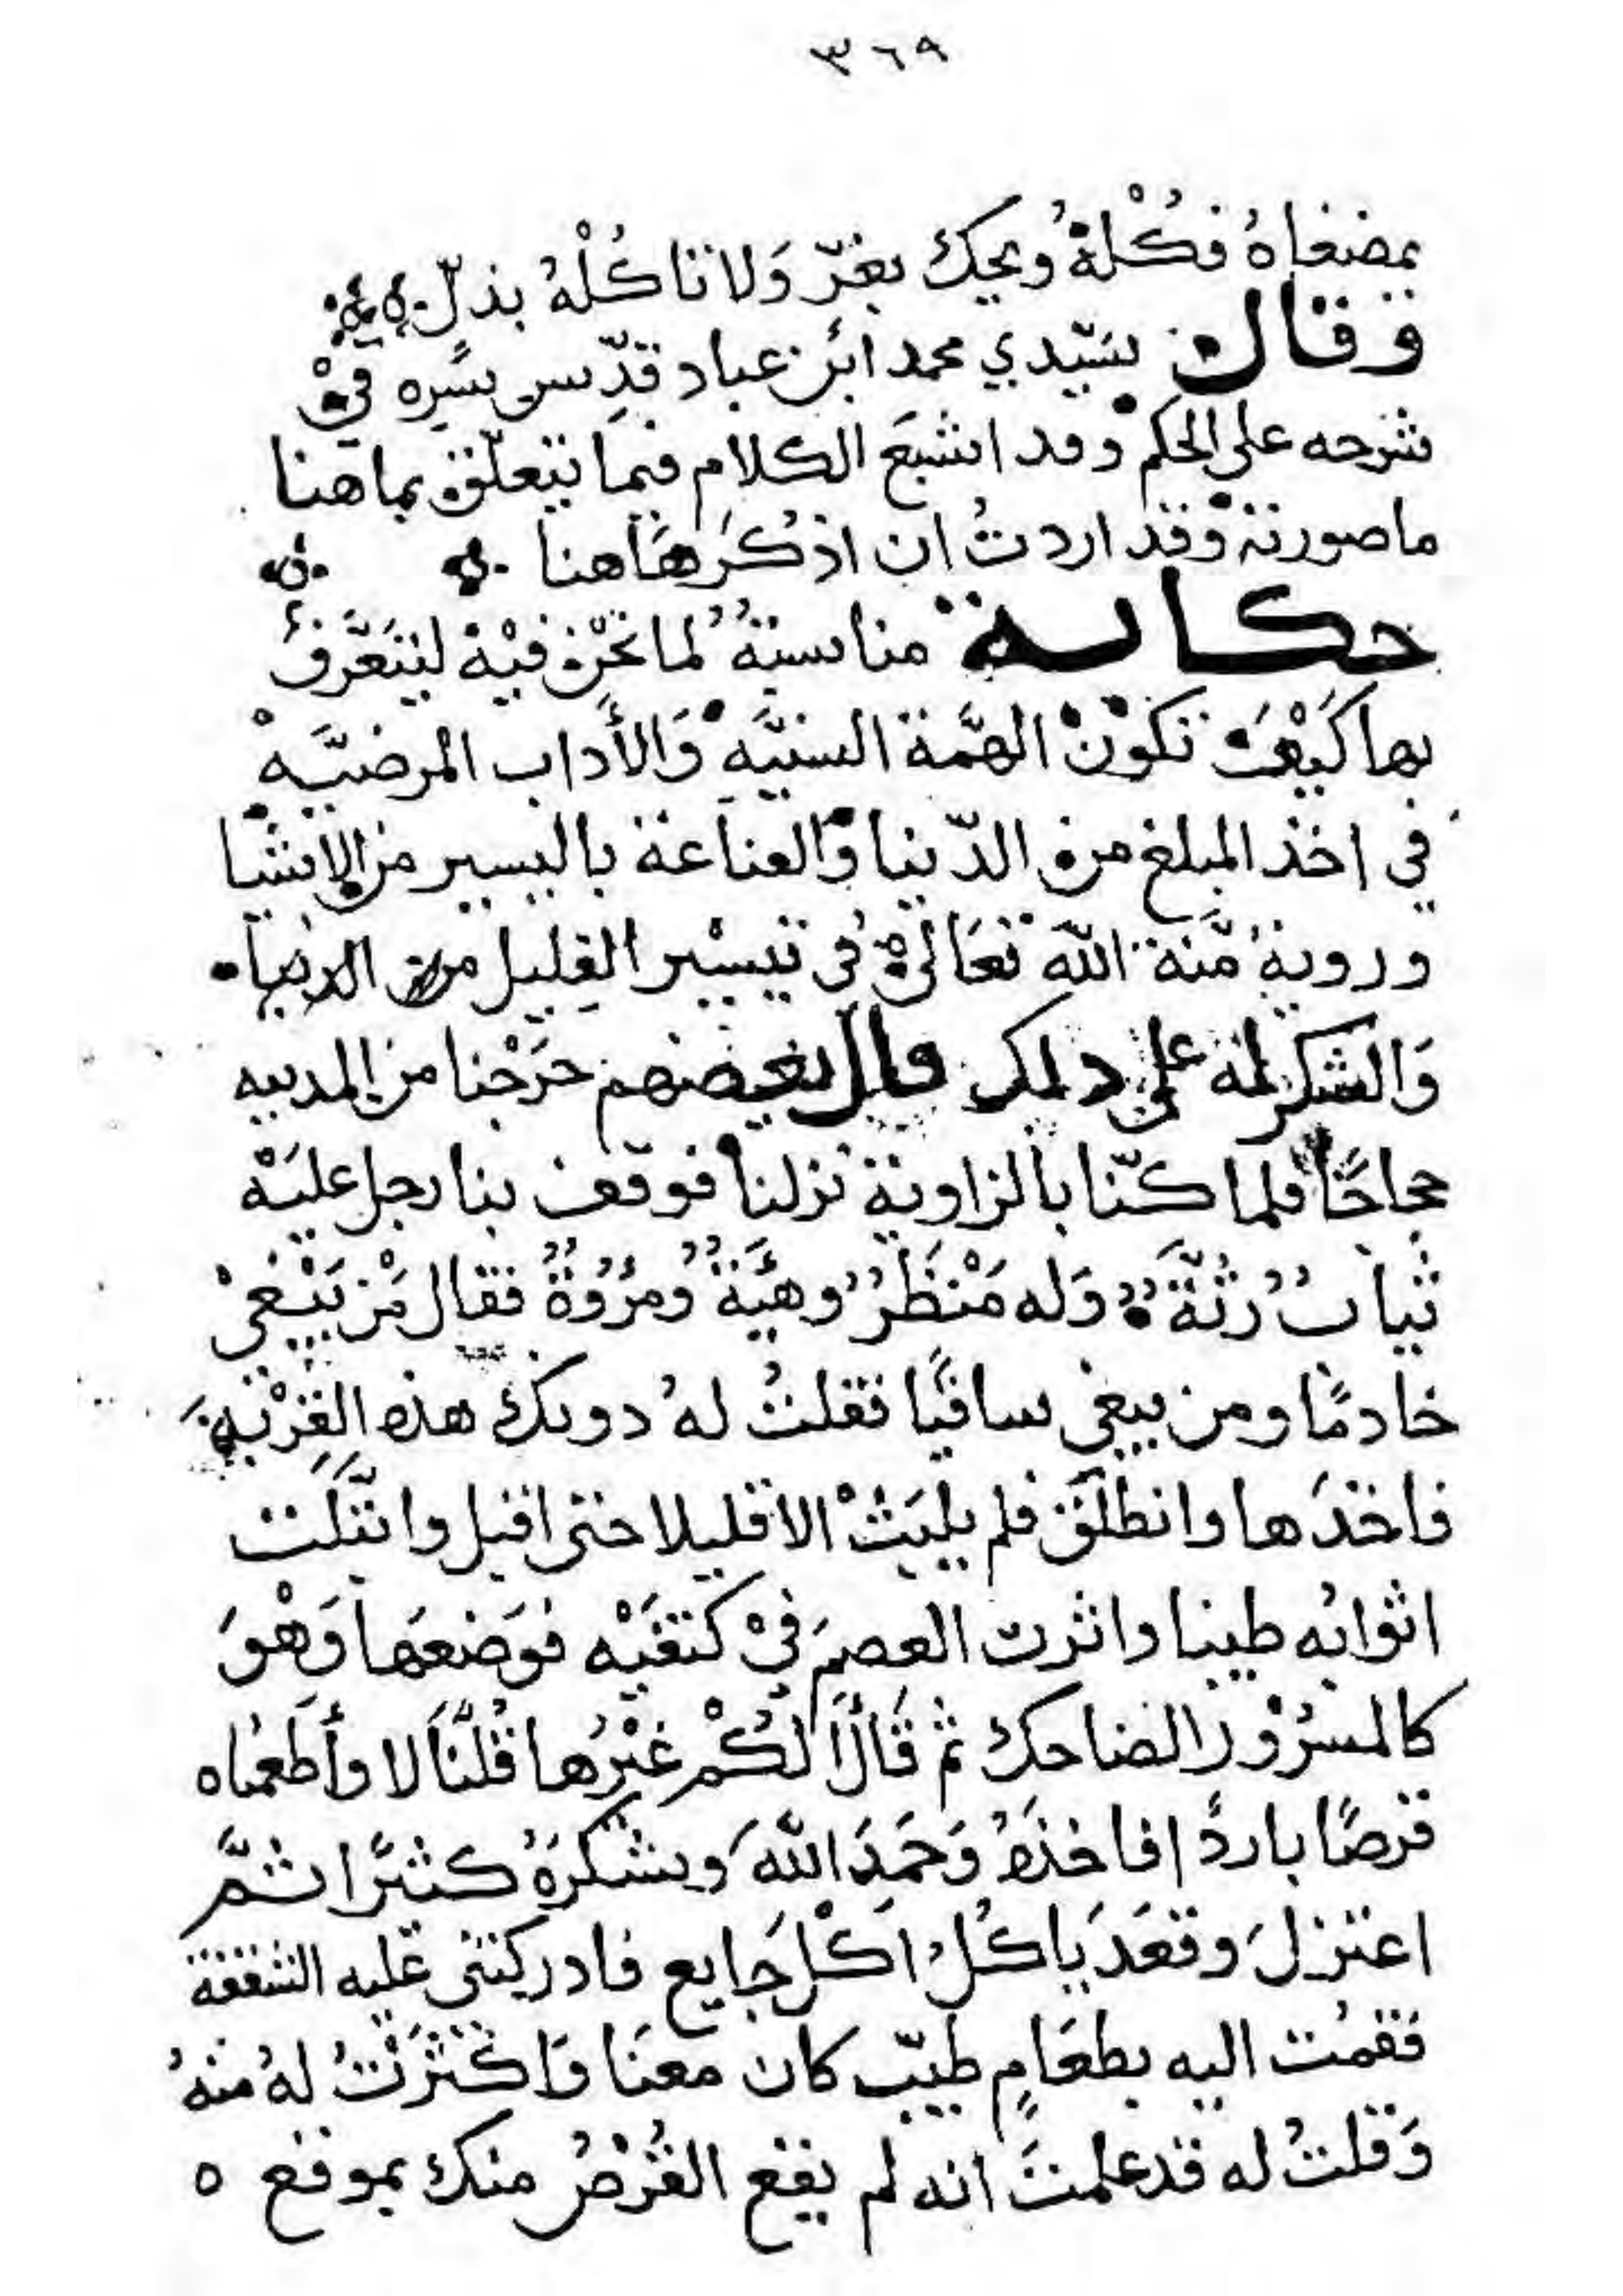 ٣٦٩
يمضغاهُ فكُلْهُ ويحك بعزّ وَلا تاكُلْهُ بذلّ
وقال سيّدي محمد ابن عباد قدّس سرّه في
شرحه على الحكم وقد اشبعَ الكلام فيما يتعلّق بما هنا
ما صورته وقد اردتُ ان اذكُرَ هَاهنا
حكاية مناسبةُ لما نحْن فيْه ليَتعَرَّفُ
بها كَيْفَ تكوْنْ الهمَّة السنيَّه وَالأداب المرضيَّهْ
في اخذ المبلغ من الدّنيا والقناعة باليسير من الاشيا
وروية مّنة الله تعَالى في تيسْير القليل من الدنيا
وَالشكر له على ذلك قال بعضهم خرَجْنا من المدينه
حجاجًا فلما كنّا بالزاوية نزلنا فوقف بنا رجل عليَهْ
ثيابُ رُثّةُ وَله مَنْظَرُ وهيَّةُ ومرُوُةُ فقال مَنْ يَبْغيْ
خادمًا ومن يبغي ساقيًا فقلتُ لهُ دونك هذه القِرْبه
فاخذَها وانطلَقَ فلم يلبَثْ الا قليلا حتى اقبل وابتَلَّت
اثوابُه طينا واثرت العصمَ فيْ كتفَيْه فوَضعَها وَهْوَ
كالمسرُوْر الضاحك ثم قَالَ ألَكُمْ غيْرُها قُلْنَا لا وأطعمْناه
قرصًا باردًا فاخذهُ وَحَمدَ اللهَ وشكرَهُ كثيْرًا ثمَّ
اعتزلَ وقعَدَ ياكُلُ اكْلَ جَايع فادركتني عَليه الشفقة
فقمْت اليه بطعَامٍ طيّب كان معنَا وَاكْثَرْتُ لهُ منْهُ
وَقلتُ له قد علمتَ انه لم يقع القُرْصُ منك بموقع ه